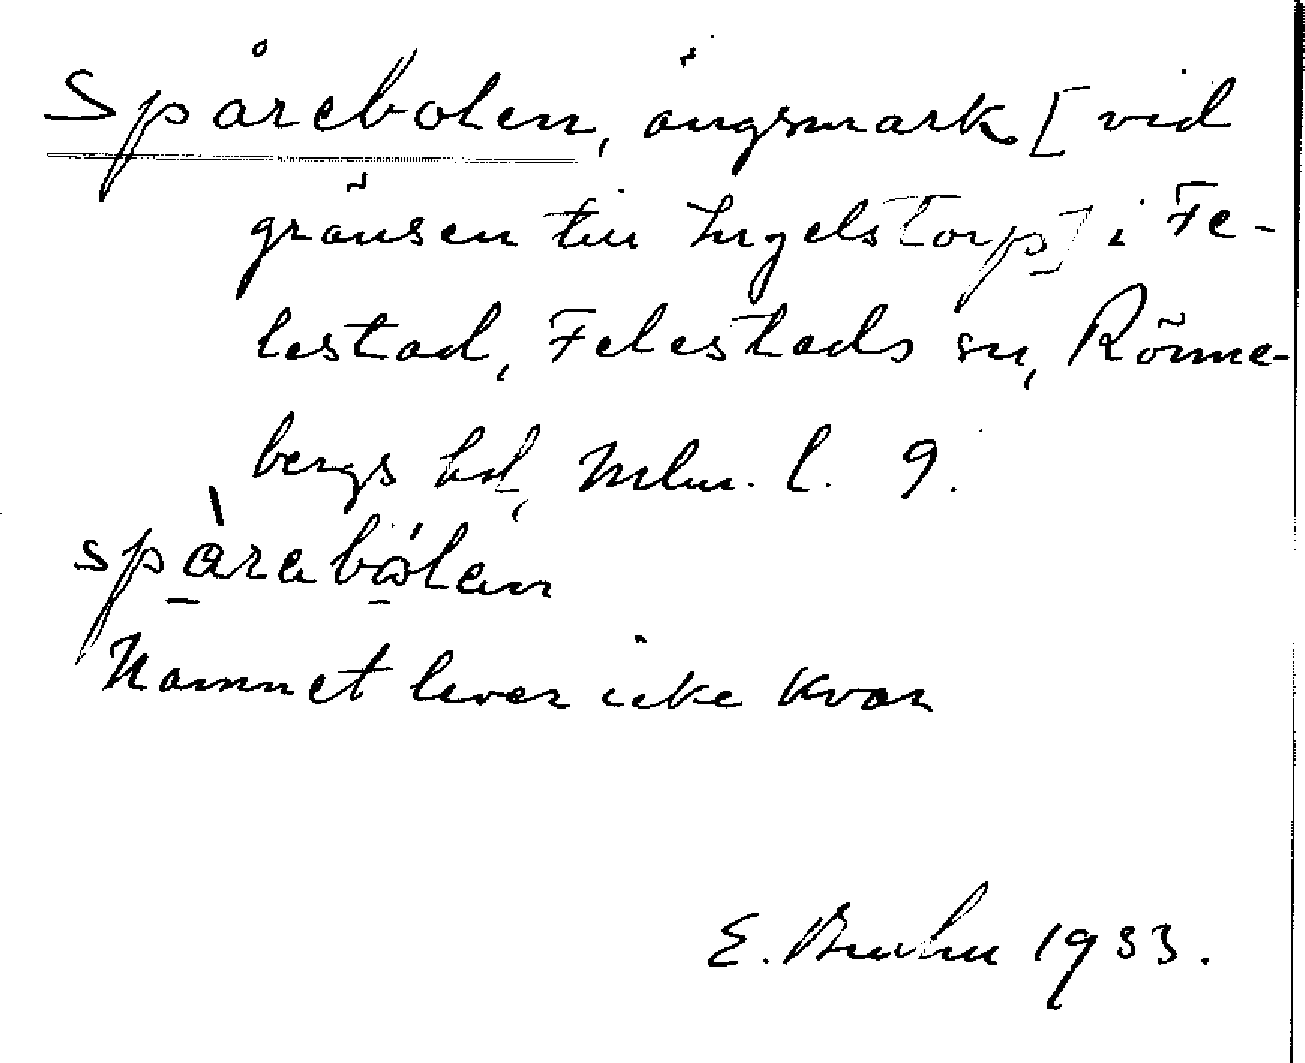 Spårebolen, ängsmark [vid
gränsen till Ingelstorp] i Fe-
lestad, Felestads sn, Rönne-
bergs hd, Mlm. l. 9.
spàrabólan
Namnet lever icke kvar
E. Bruhn 1933.